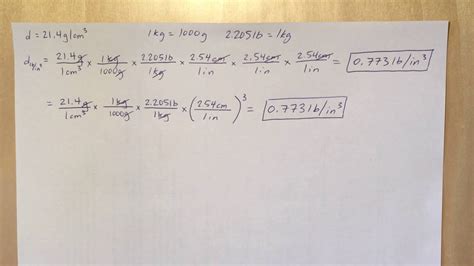 d = 21.4g/cm³ 1kg = 1000g 2.205lb = 1kg
d lb/in³ = 21.4g/1cm³ × 1kg/1000g × 2.205lb/1kg × 2.54cm/1in × 2.54cm/1in × 2.54cm/1in = 0.773lb/in³
= 21.4g/1cm³ × 1kg/1000g × 2.205lb/1kg × (2.54cm/1in)³ = 0.773lb/in³